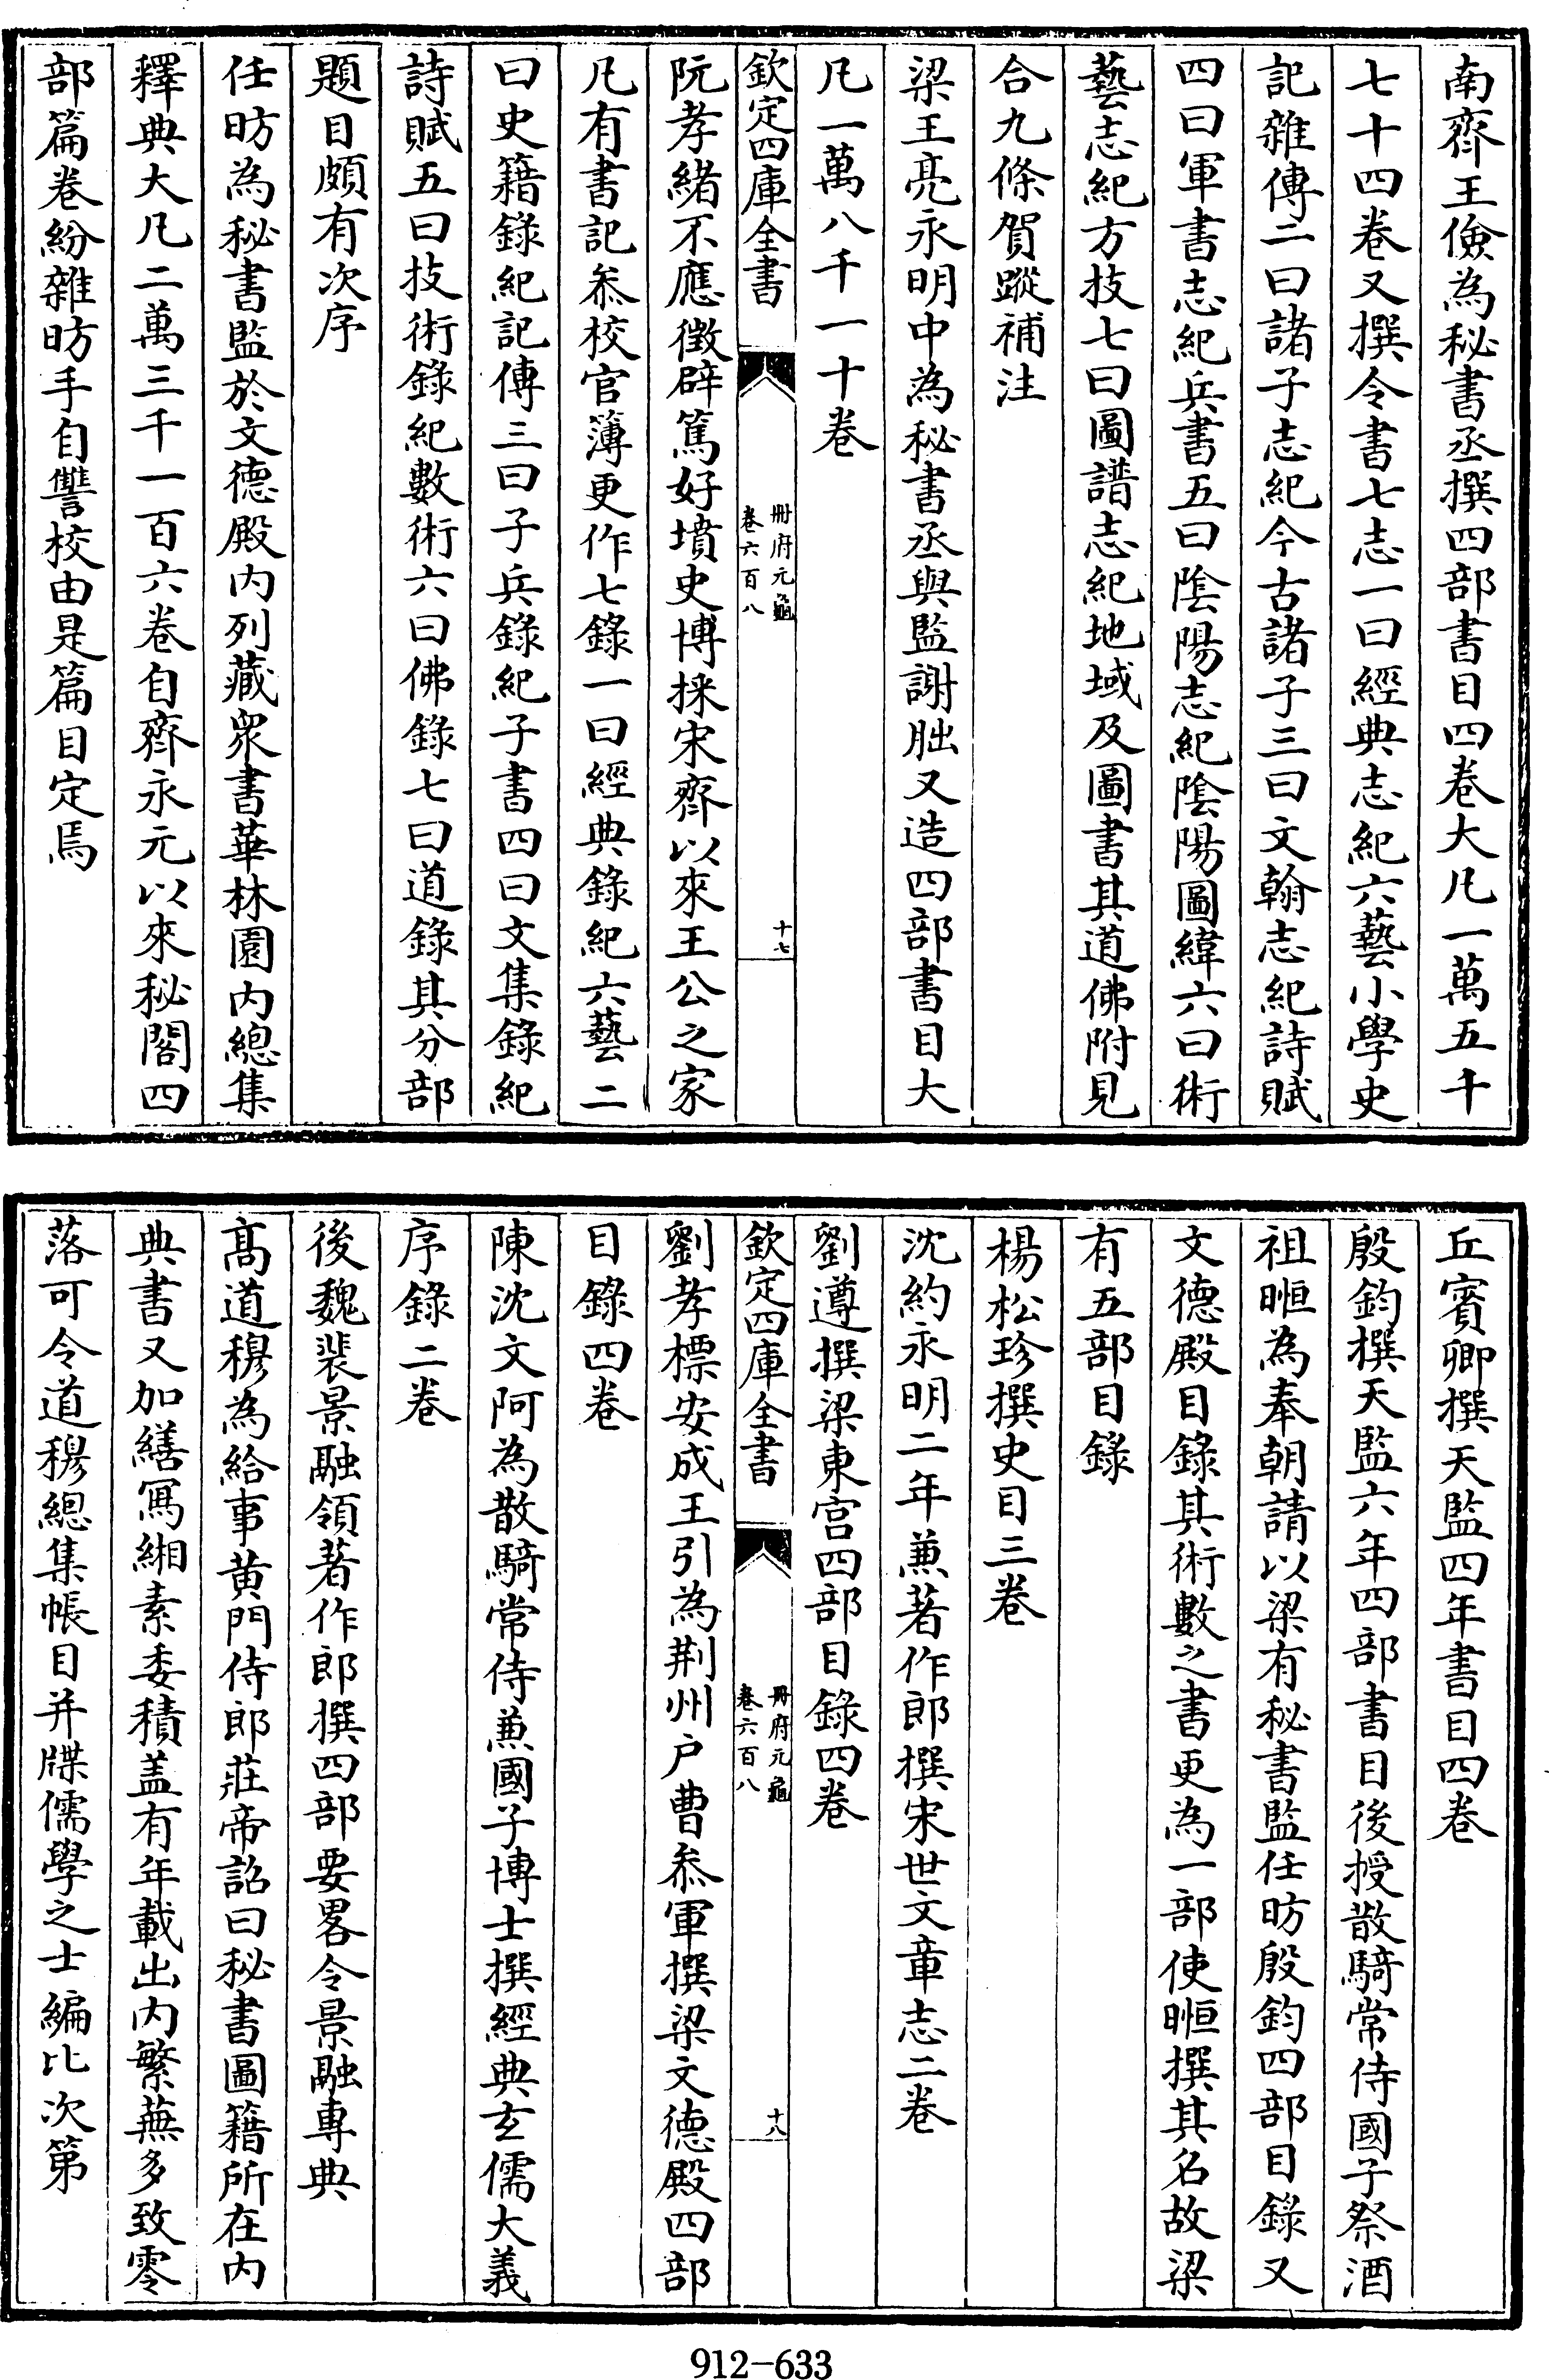 南齊王儉為秘書丞撰四部書目四卷大凡一萬五千
七十四卷又撰令書七志一曰經典志紀六藝小學史
記雜傳二曰諸子志紀今古諸子三曰文翰志紀詩賦
四曰軍書志紀兵書五曰陰陽志紀陰陽圖緯六曰術
藝志紀方技七曰圖譜志紀地域及圖書其道佛附見
合九條賀蹤補注
梁王亮永明中為秘書丞與監謝朏又造四部書目大
凡一萬八千一十卷
欽定四庫全書
冊府元龜
卷六百八
十七
阮孝緒不應徵辟篤好墳史博採宋齊以來王公之家
凡有書記叅校官簿更作七錄一曰經典錄紀六藝二
曰史籍錄紀記傳三曰子兵錄紀子書四曰文集錄紀
詩賦五曰技術錄紀數術六曰佛錄七曰道錄其分部
題目頗有次序
任昉為秘書監於文德殿内列藏衆書華林園内總集
釋典大凡二萬三千一百六卷自齊永元以來秘閣四
部篇卷紛雜昉手自讐校由是篇目定焉
丘賓卿撰天監四年書目四卷
殷鈞撰天監六年四部書目後授散騎常侍國子祭酒
祖暅為奉朝請以梁有秘書監任昉殷鈞四部目錄又
文德殿目錄其術數之書更為一部使暅撰其名故梁
有五部目錄
楊松珍撰史目三卷
沈約永明二年兼著作郎撰宋世文章志二卷
劉遵撰梁東宮四部目錄四卷
欽定四庫全書
冊府元龜
卷六百八
十八
劉孝標安成王引為荆州户曹叅軍撰梁文德殿四部
目錄四卷
陳沈文阿為散騎常侍兼國子博士撰經典玄儒大義
序錄二卷
後魏裴景融領著作郎撰四部要畧令景融專典
髙道穆為給事黄門侍郎莊帝詔曰秘書圖籍所在内
典書又加繕冩緗素委積盖有年載出内繁蕪多致零
落可令道穆總集帳目并牒儒學之士編比次第
912-633